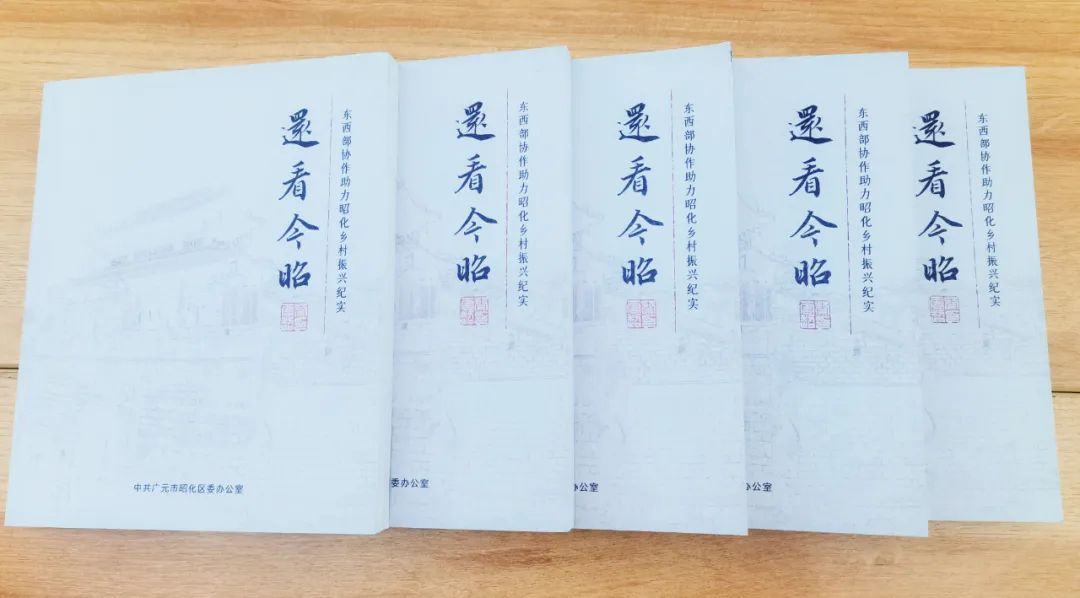 還看今昭
东西部协作助力昭化乡村振兴纪实
中共广元市昭化区委办公室
還看今昭
东西部协作助力昭化乡村振兴纪实
委办公室
還看今昭
东西部协作助力昭化乡村振兴纪实
办公室
還看今昭
东西部协作助力昭化乡村振兴纪实
办公室
還看今昭
东西部协作助力昭化乡村振兴纪实